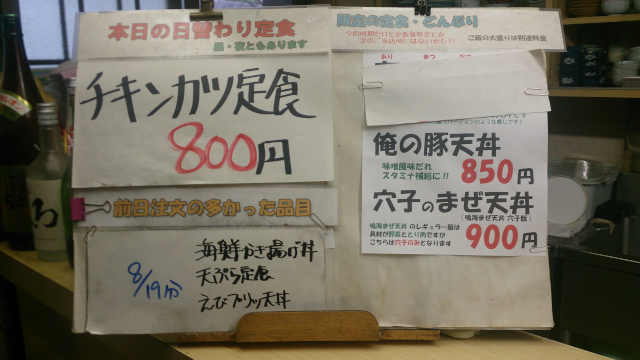 本日の日替わり定食
昼・夜ともあります
チキンカツ定食
800円
前日注文の多かった品目
8/19分
海鮮かき揚げ丼
天ぷら定食
えびプリッツ天丼
限定の定食・どんぶり
ご飯の大盛りは別途料金
俺の豚天丼
味噌風味だれ
スタミナ補給に!!
850円
穴子のまぜ天丼
(鳴海まぜ天丼 穴子版)
鳴海まぜ天丼 のレギュラー版は
具材が野菜ととり肉ですが
こちらは穴子のみとなります
900円